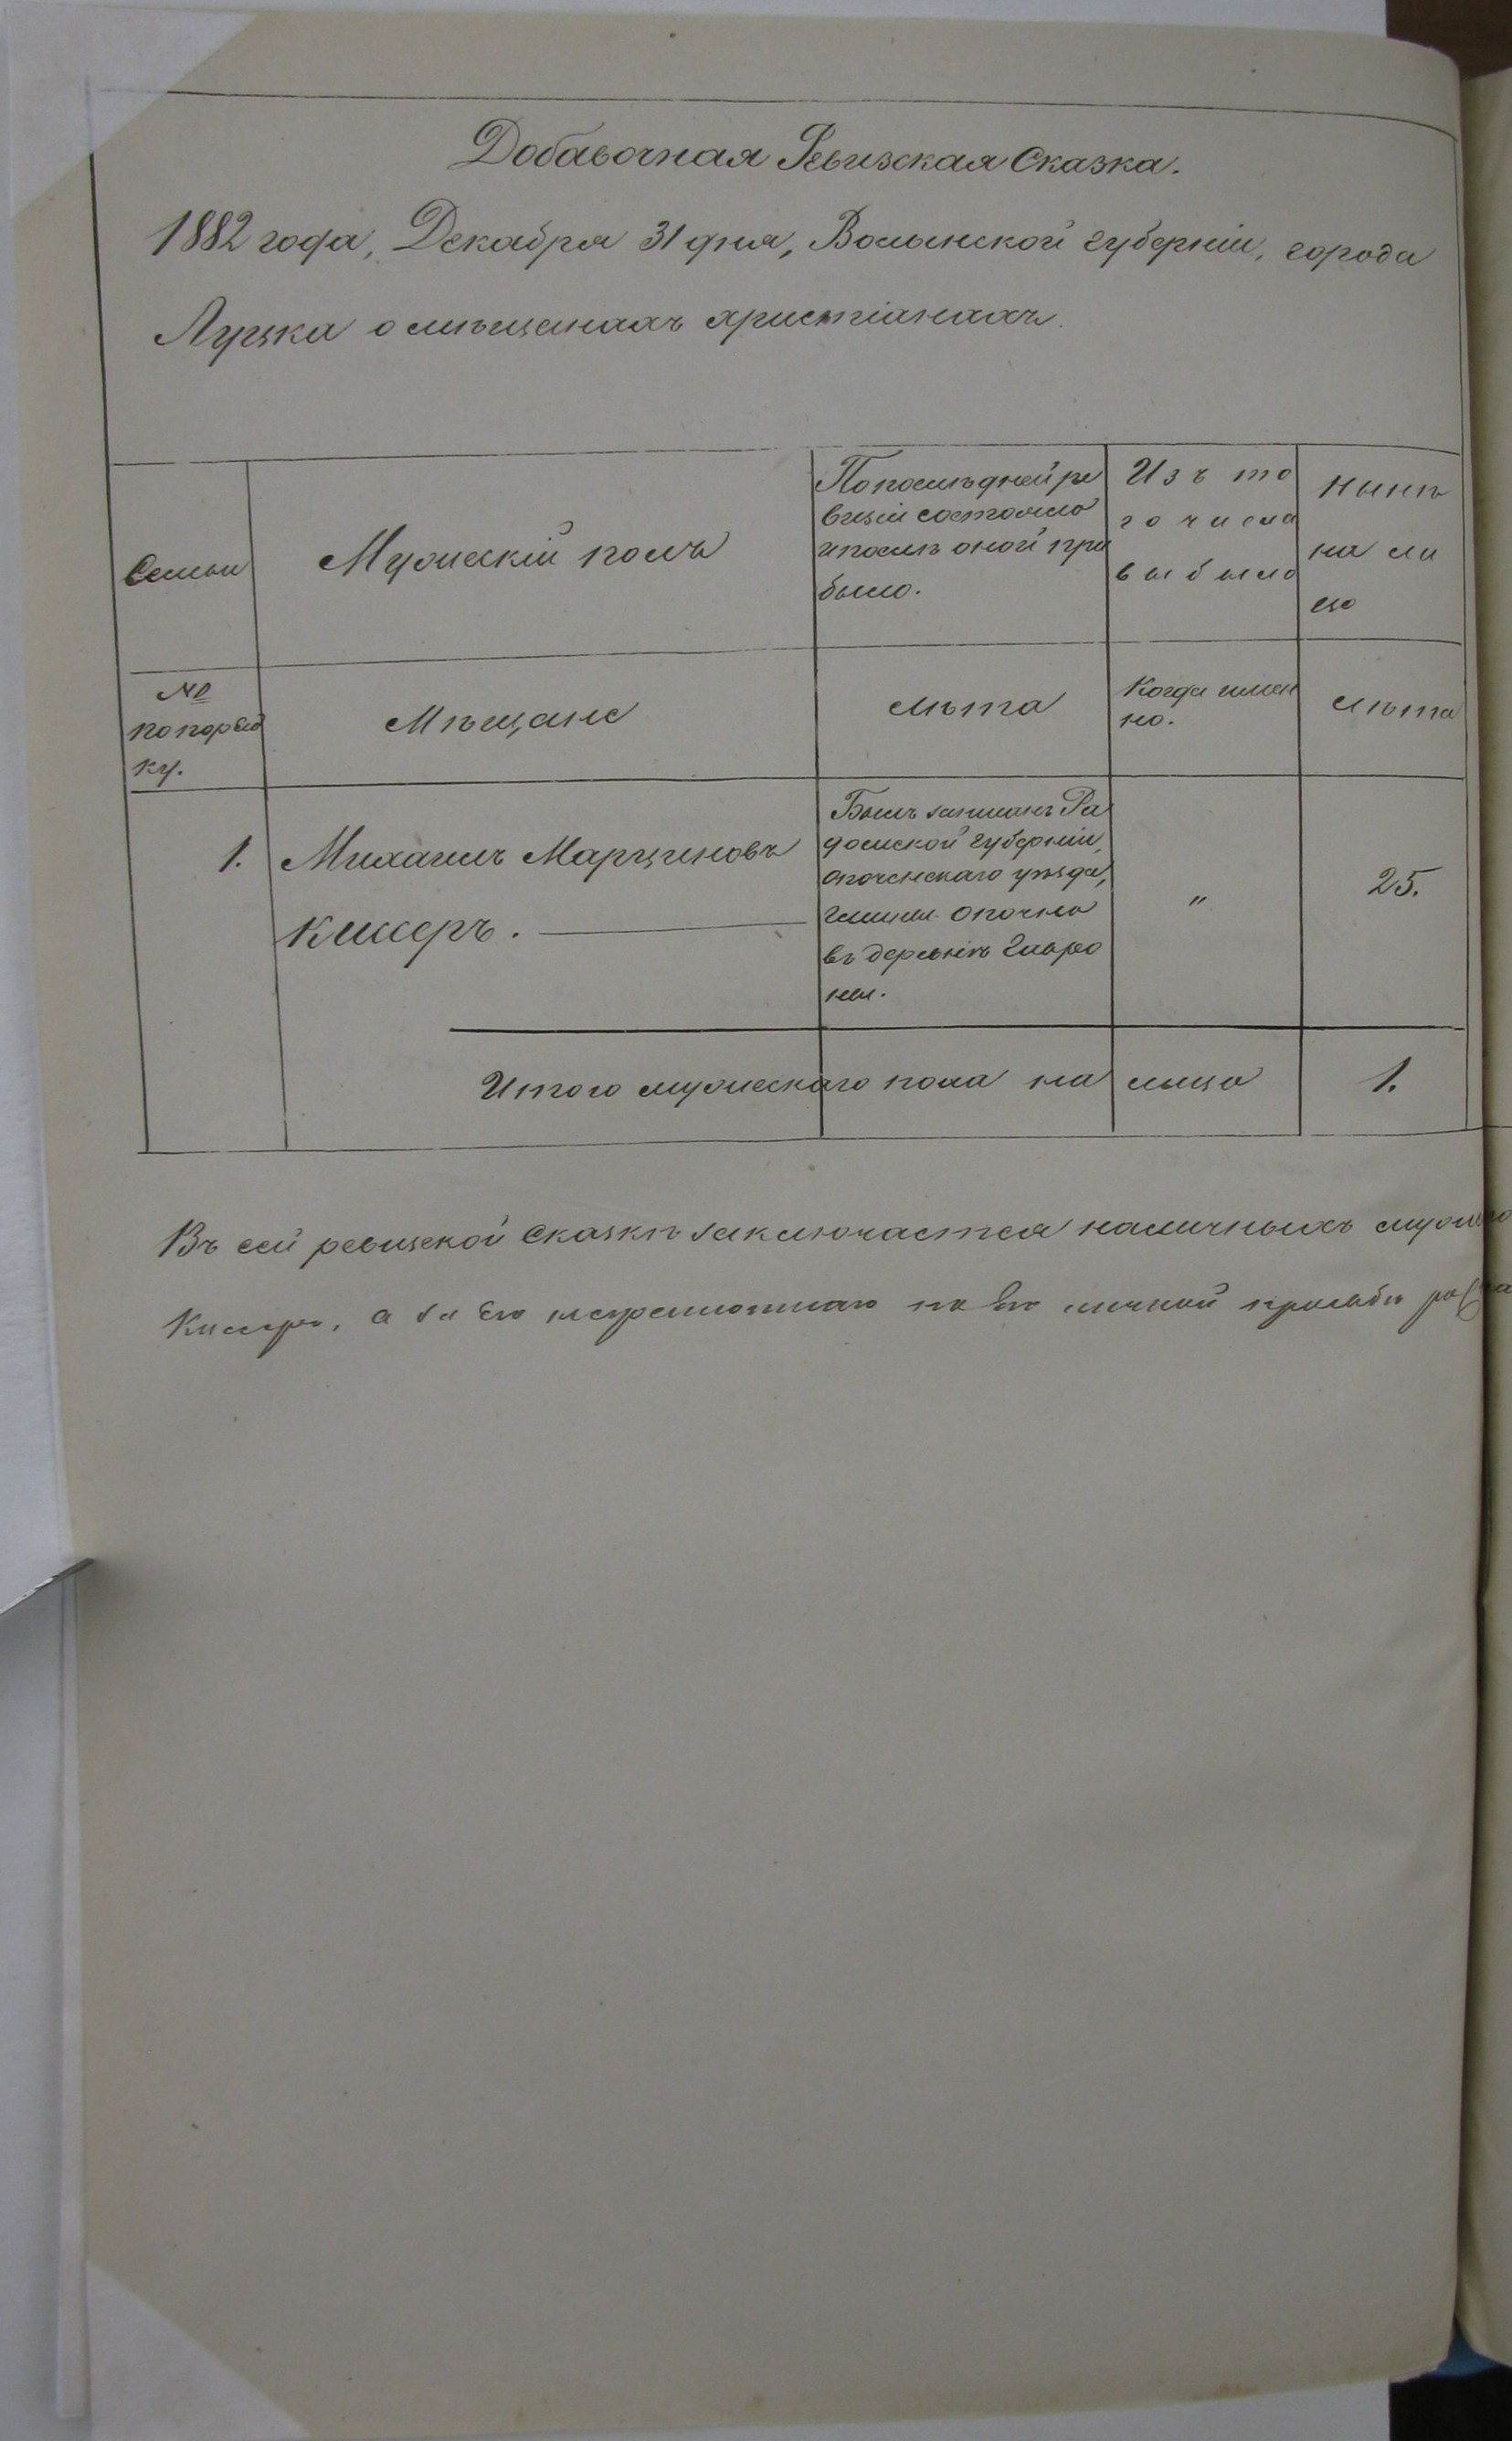 Добавочная Ревизская Сказка.
1882 года, Декабря 31 дня, Волынской губерніи, города
Луцка о мѣщанахъ христіанахъ.
Семьи
Мужескій полъ
По послѣдней ре
визіи состояло
и послѣ оной при
было.
Изъ то
го числа
выбыло
Нынѣ
на ли
цо
№
по поряд
ку.
Мѣщане
лѣта
Когда имен
но.
лѣта
1.
Михаилъ Марциновъ
Киссеръ.
Былъ записанъ Ра
домской губерніи,
опоченскаго уѣзда,
гмины Опочно
въ деревнѣ
"
25.
Итого мужескаго пола на лицо
1.
Въ сей ревизской сказкѣ заключается наличныхъ
а за Его неграмотнаго по Его личной просьбѣ